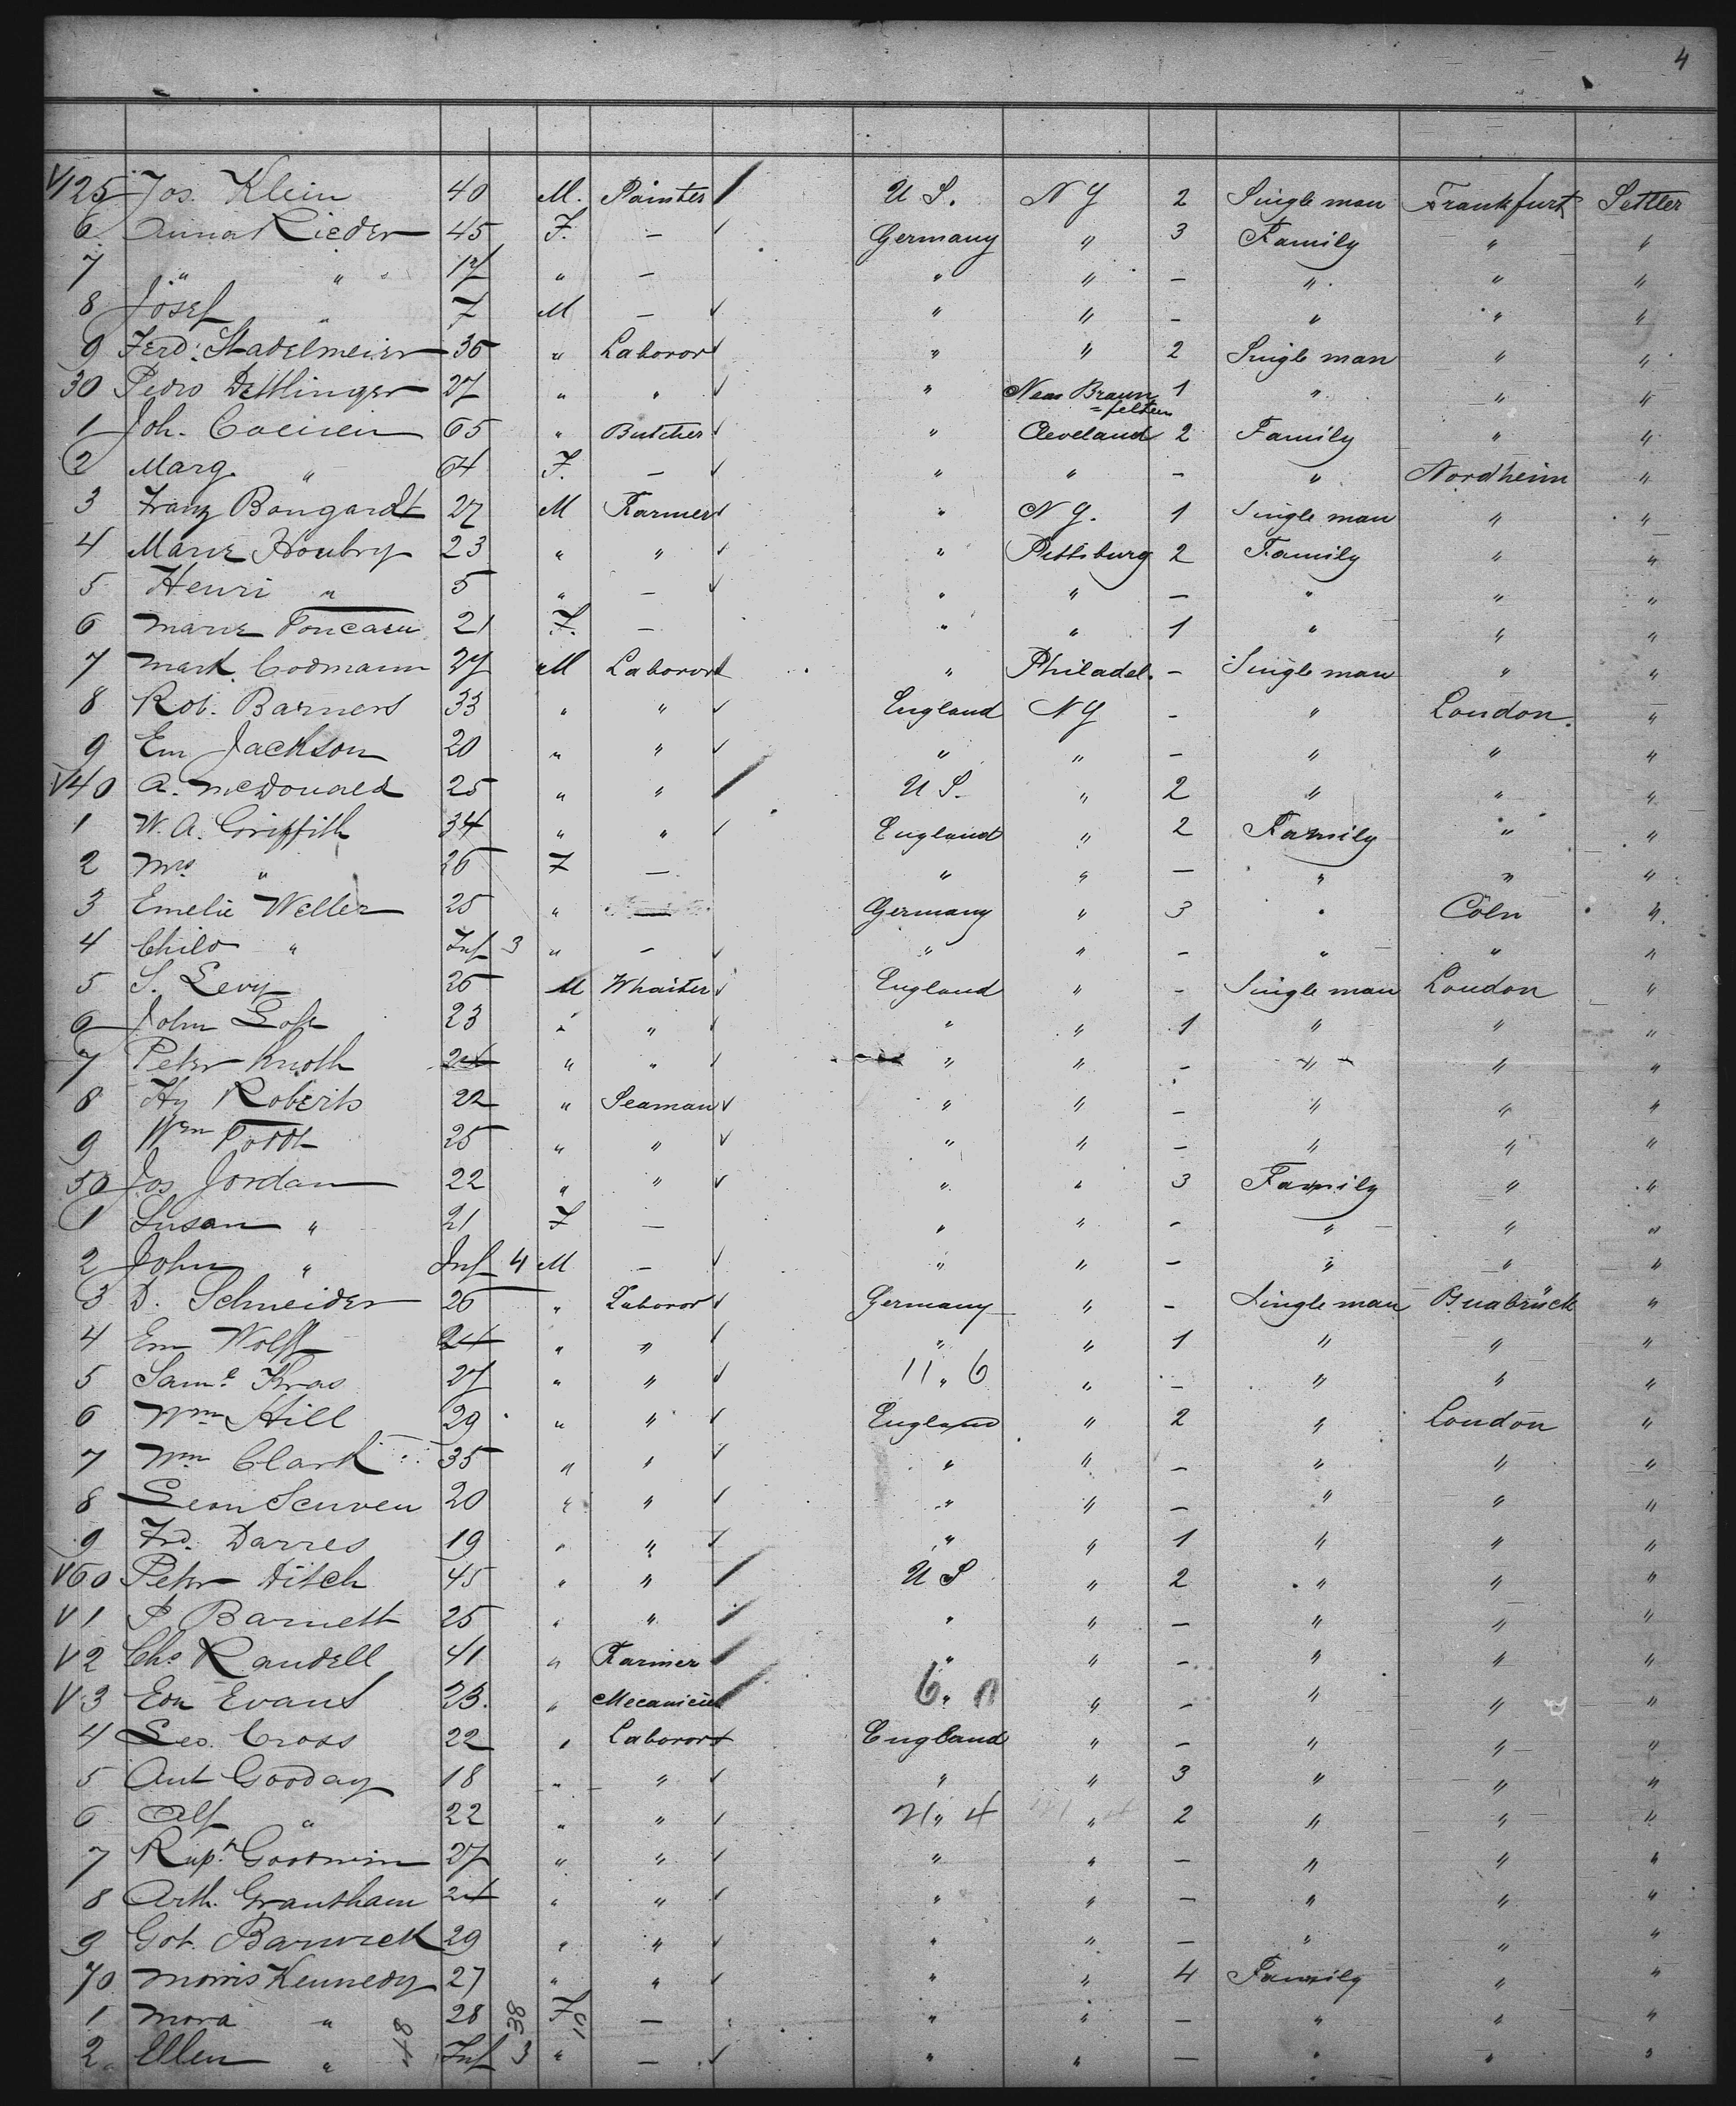 4
√125 Jos. Klein 40 M. Painter / U S. N Y 2 Single man Frankfurt Settler
6 Anna Rieder 45 F. — √ Germany " 3 Family " "
7 " " 17 " — " " — " " "
8 Josef " 7 M — √ " " — " " "
9 Ferd. Stadelmeier 36 " Laboror √ " " 2 Single man " "
30 Pedro Dettlinger 27 " " √ " Neas Braun=felsen 1 " " "
1 Joh. 65 " Butcher √ " Cleveland 2 Family " "
2 Marg. " 64 F. — √ " " — " Nordheim "
3 Franz Bongardt 27 M Farmer √ " N Y. 1 Single man " "
4 Marie Houbry 23 " " √ " Pittsburg 2 Family " "
5 Henri " 5 " — √ " " — " " "
6 Marie Poncaeu 21 F. — " " 1 " " "
7 Mark. Codmann 27 M Laboror √ " Philadel. — Single man " "
8 Rob. Barners 33 " " √ England N Y — " London. "
9 Em Jackson 20 " " √ " " — " " "
√40 A. McDonald 25 " " / U S. " 2 " " "
1 W. A. Griffith 34 " " √ England " 2 Family " "
2 Mrs " 26 F — " " — " " "
3 Emelie Weller 25 " — Germany " 3 " Cöln "
4 Child " Inf 3 " — √ " " — " " "
5 S. Levy 26 M Whaiter √ England " — Single man London "
6 John 23 " " √ " " 1 " " "
7 Peter Knoth 24 " " √ " " — " " "
8 Hy Roberts 22 " Seaman √ " " — " " "
9 Wm Toddt 25 " " √ " " — " " "
50 Jos Jordan 22 " " √ " " 3 Family " "
1 Susan " 21 F — " " — " " "
2 John " Inf 4 M — √ " " — " " "
3 D. Schneider 26 " Laboror √ Germany " — Single man Osnabrück "
4 Em Wolff 24 " " √ " " 1 " " "
5 Saml. Kras 27 " " √ 11 " 6 " — " " "
6 Wm Hill 29 " " √ England " 2 " London "
7 Wm Clark 35 " " √ " " — " " "
8 Leon Scuven 20 " " √ " " — " " "
9 Frd. Darres 19 " " √ " " 1 " " "
√60 Peter Ditch 45 " " / U S " 2 " " "
√1 P Barnett 25 " " / " " — " " "
√2 Chs Randell 41 " Farmer / " " — " " "
√3 Edn Evans 23. " Mecanicien / " " — " " "
4 Leo. Cross 22 " Laboror √ England " — " " "
5 Aut Gooday 18 " " √ " " 3 " " "
6 Alf " 22 " " √ 21 " 4 " 2 " " "
7 Rup. Goodwin 27 " " √ " " — " " "
8 Arth. Grantham 24 " " √ " " — " " "
9 Got. Barwick 29 " " √ " " — " " "
70 Morris Kennedy 27 " " √ " " 4 Family " "
1 Mora " 28 F — " " — " " "
2 Ellen " Inf 3 " — √ " " — " " "
48 38